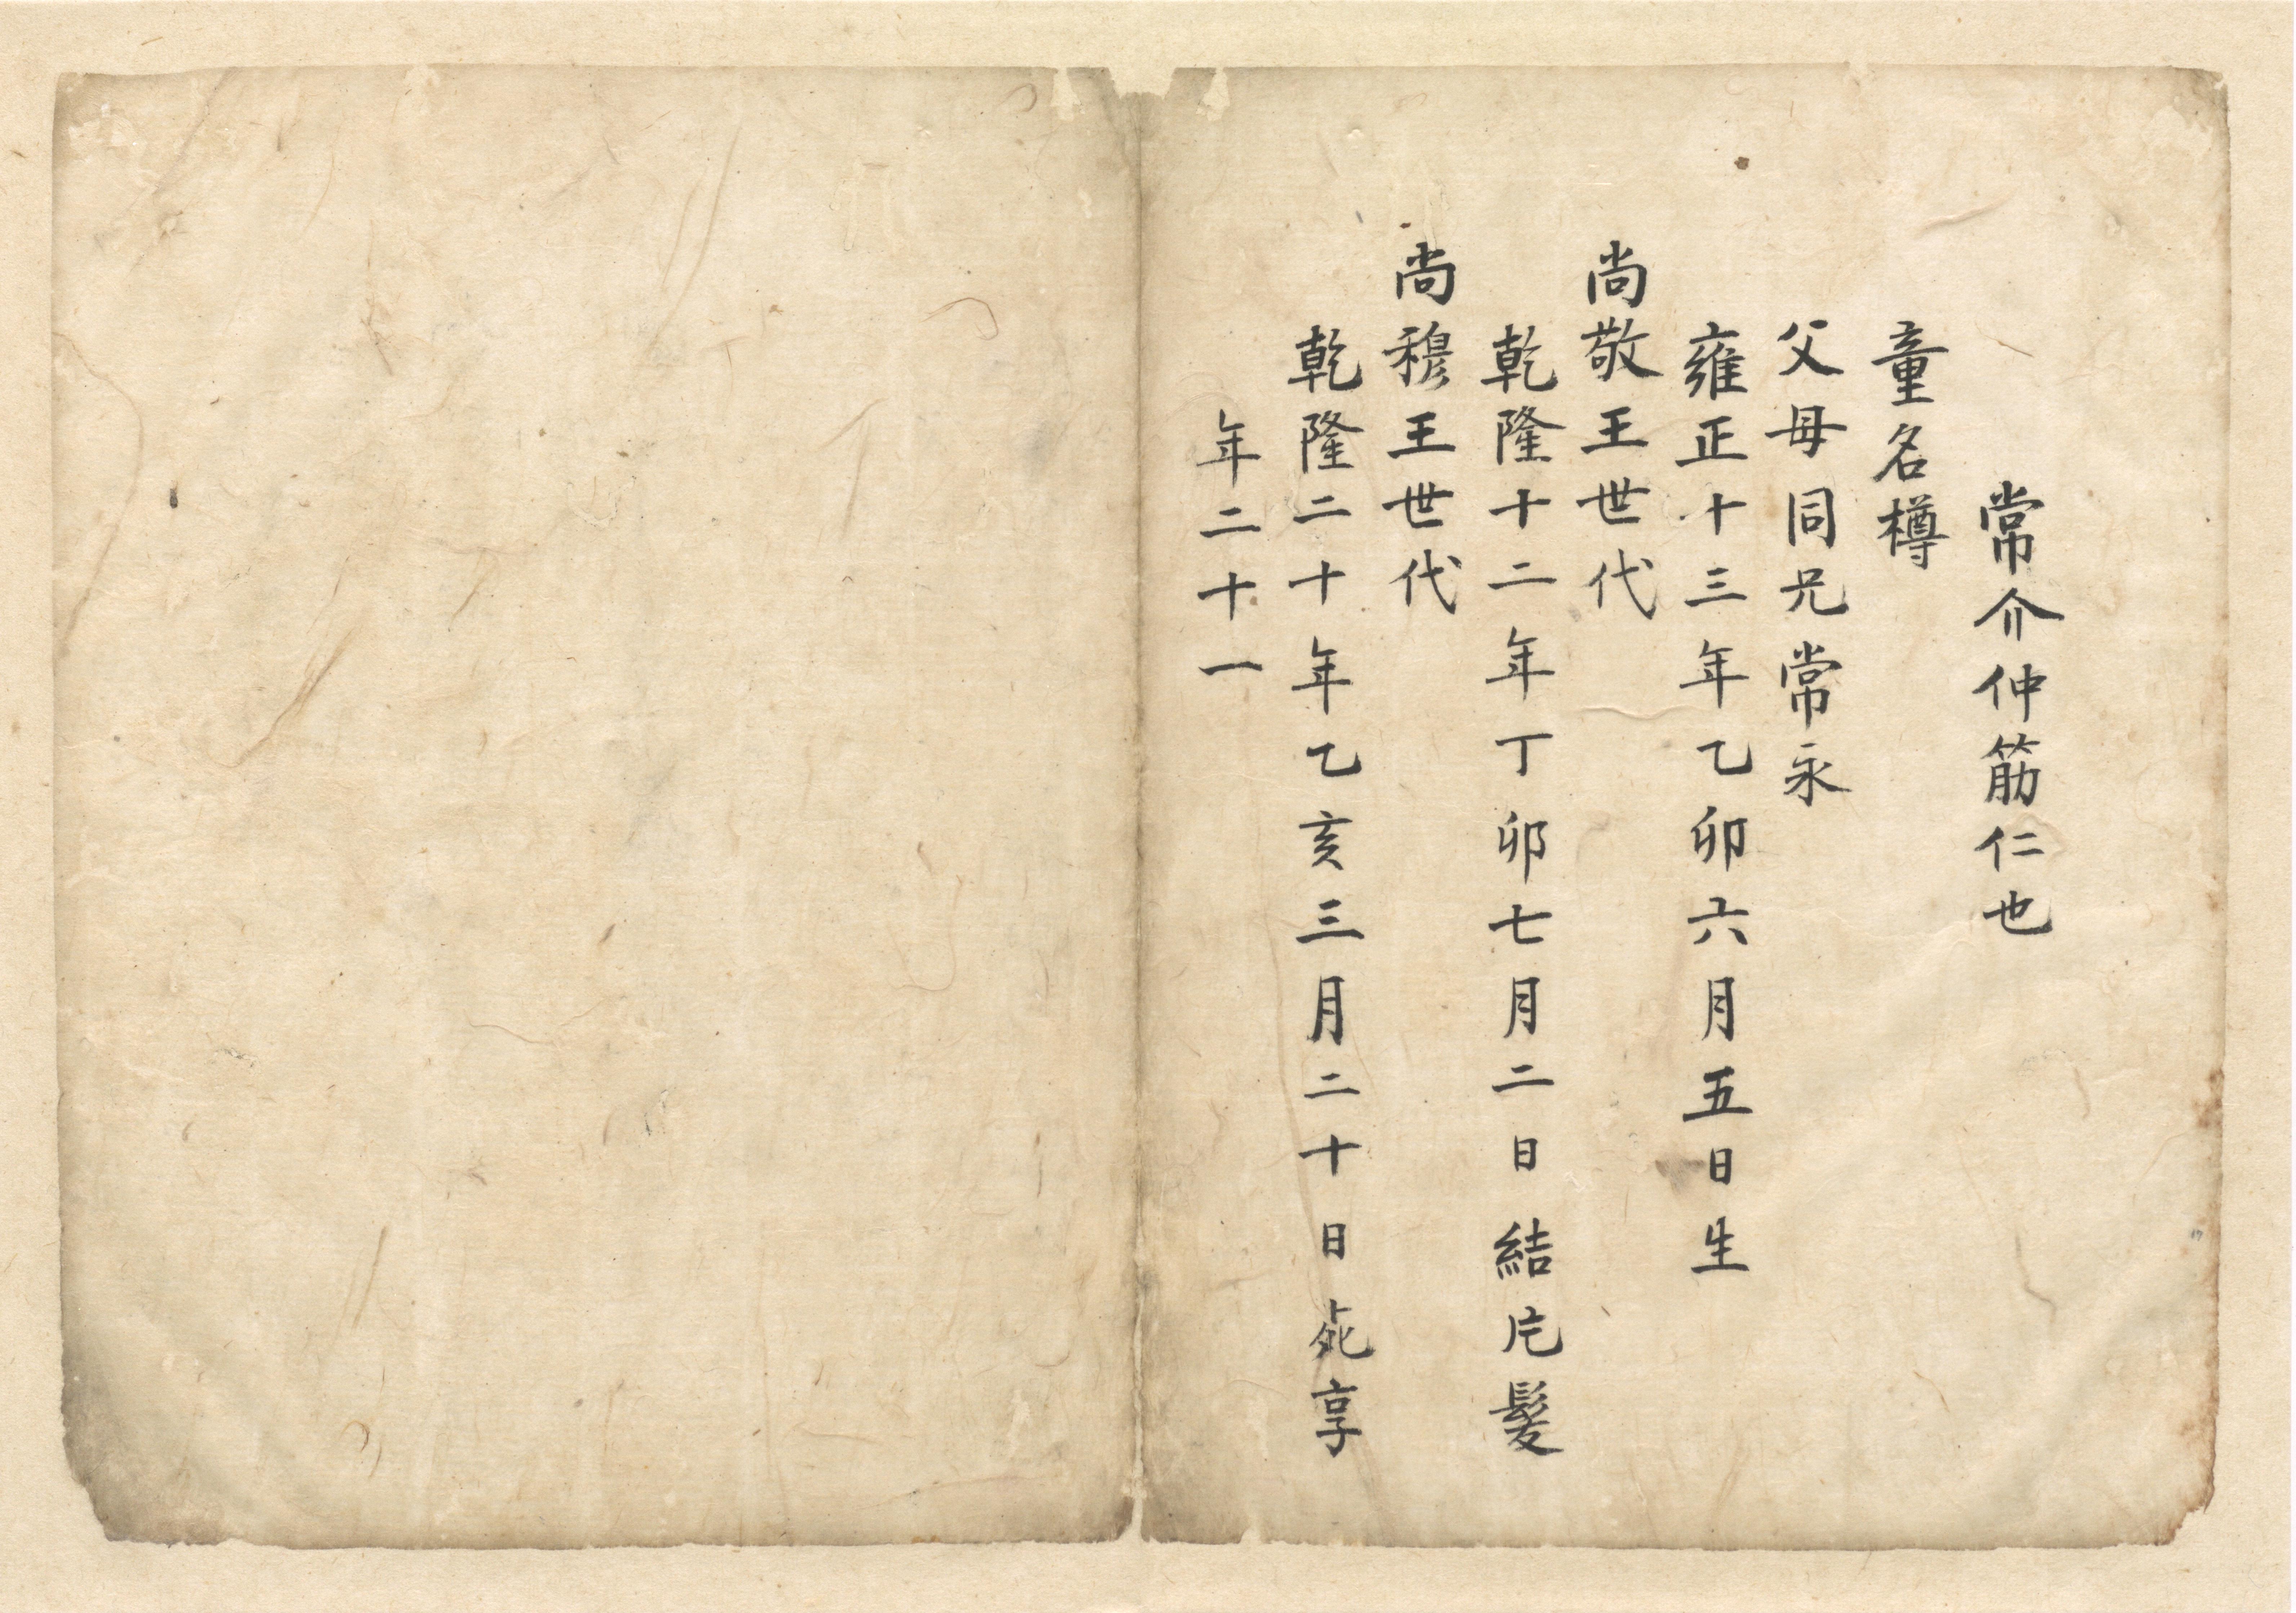 常介仲筋仁也
童名樽
父母同兄常永
雍正十三年乙卯六月五日生
尚敬王世代
乾隆十二年丁卯七月二日結片髮
尚穆王世代
乾隆二十年乙亥三月二十日死享
年二十一